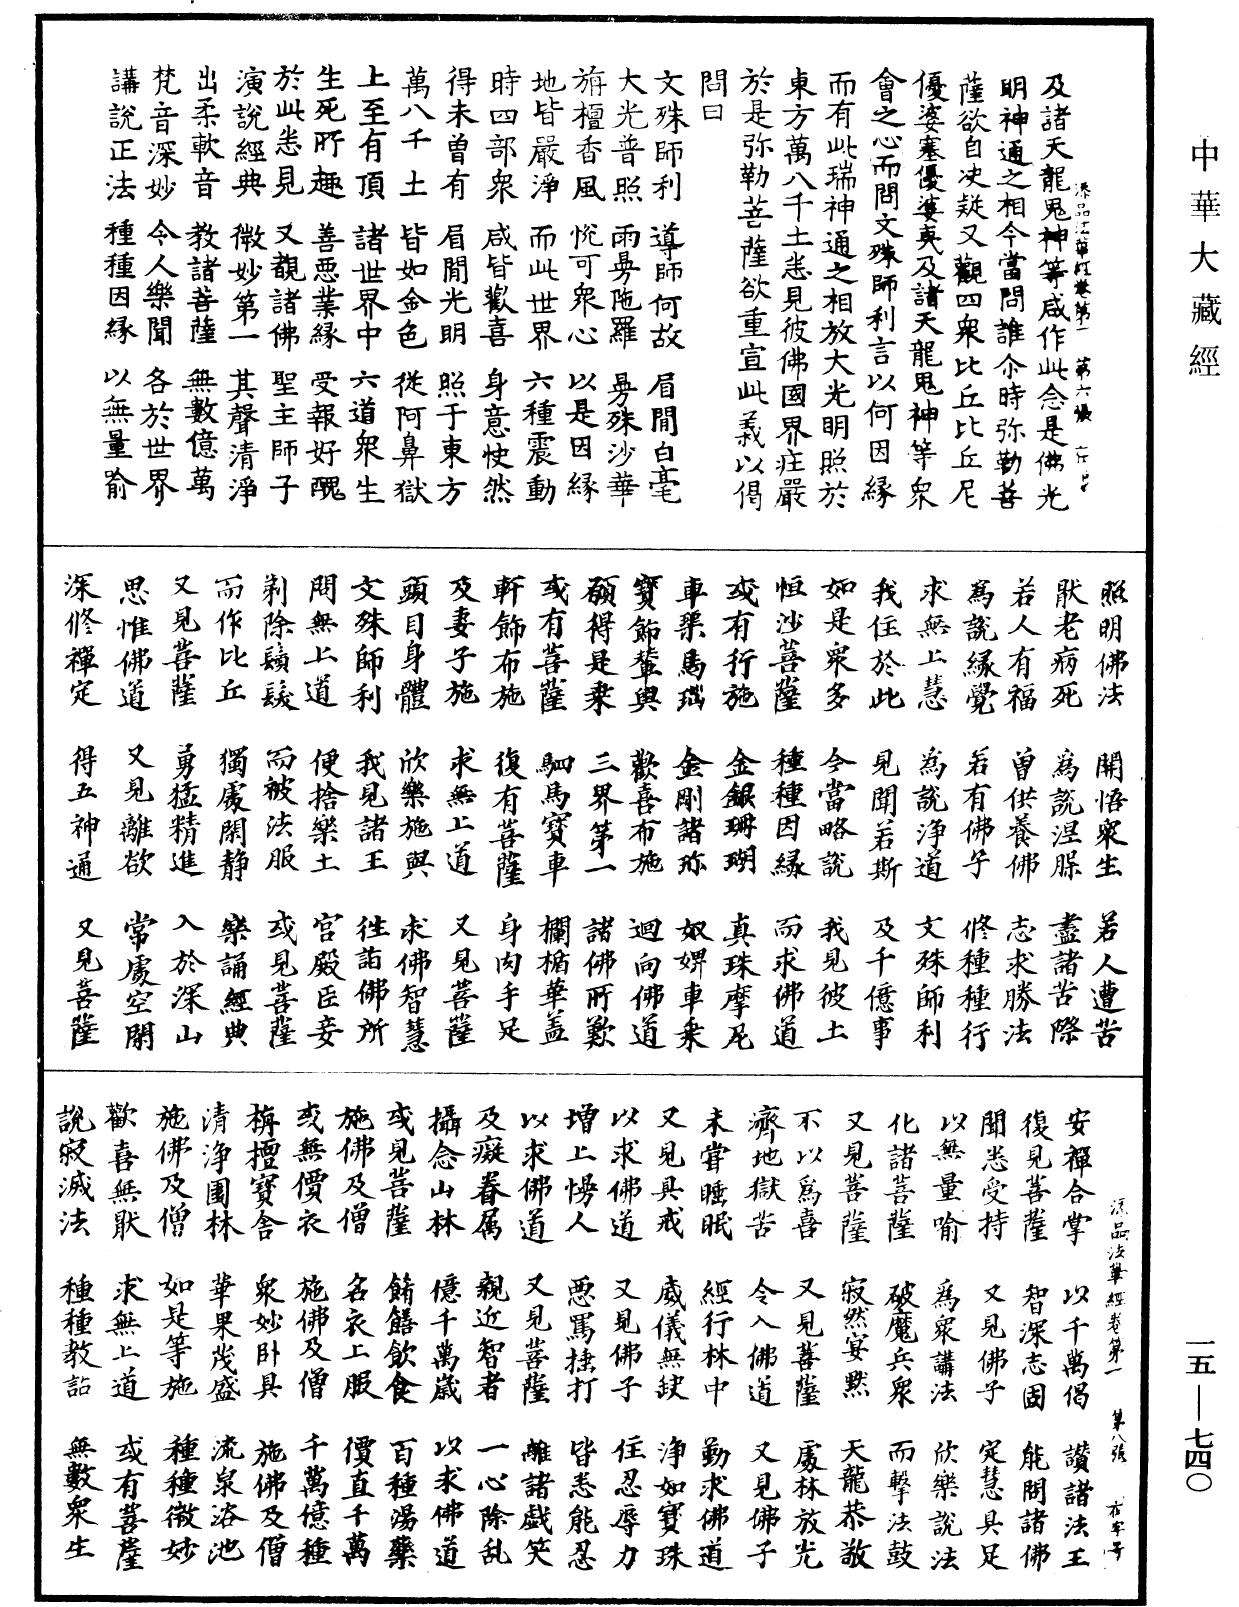 中華大藏經
一五—七四〇
及諸天龍鬼神等咸作此念是佛光
明神通之相今當問誰尒時弥勒菩
薩欲自决疑又觀四衆比丘比丘尼
優婆塞優婆夷及諸天龍鬼神等衆
會之心而問文殊師利言以何因緣
而有此瑞神通之相放大光明照於
東方萬八千土悉見彼佛國界莊嚴
於是弥勒菩薩欲重宣此義以偈
問曰
文殊師利 導師何故 眉間白毫
大光普照 雨曼陁羅 曼殊沙華
旃檀香風 悅可衆心 以是因緣
地皆嚴淨 而此世界 六種震動
時四部衆 咸皆歡喜 身意快然
得未曾有 眉間光明 照于東方
萬八千土 皆如金色 從阿鼻獄
上至有頂 諸世界中 六道衆生
生死所趣 善惡業緣 受報好醜
於此悉見 又覩諸佛 聖主師子
演說經典 微妙第一 其聲清淨
出柔軟音 教諸菩薩 無數億萬
梵音深妙 令人樂聞 各於世界
講說正法 種種因緣 以無量喻
照明佛法 開悟衆生 若人遭苦
猒老病死 爲說涅槃 盡諸苦際
若人有福 曾供養佛 志求勝法
爲說緣覺 若有佛子 修種種行
求無上慧 爲說淨道 文殊師利
我住於此 見聞若斯 及千億事
如是衆多 今當略說 我見彼土
恒沙菩薩 種種因緣 而求佛道
或有行施 金銀珊瑚 真珠摩尼
車𤦲馬瑙 金剛諸珎 奴婢車乘
寶飾輦輿 歡喜布施 迴向佛道
願得是乘 三界第一 諸佛所歎
或有菩薩 駟馬寶車 欄楯華盖
軒飾布施 復有菩薩 身肉手足
及妻子施 求無上道 又見菩薩
頭目身體 欣樂施與 求佛智慧
文殊師利 我見諸王 往詣佛所
問無上道 便捨樂土 宮殿臣妾
剃除鬚髮 而被法服 或見菩薩
而作比丘 獨處閑靜 樂誦經典
又見菩薩 勇猛精進 入於深山
思惟佛道 又見離欲 常處空閑
深修禪定 得五神通 又見菩薩
添品法華經卷第一 第八張
安禪合掌 以千萬偈 讚諸法王
復見菩薩 智深志固 能問諸佛
聞悉受持 又見佛子 定慧具足
以無量喻 爲衆講法 欣樂說法
化諸菩薩 破魔兵衆 而擊法鼓
又見菩薩 寂然宴默 天龍恭敬
不以爲喜 又見菩薩 處林放光
濟地獄苦 令入佛道 又見佛子
未甞睡眠 經行林中 勤求佛道
又見具戒 威儀無缺 淨如寶珠
以求佛道 又見佛子 住忍辱力
增上慢人 惡罵捶打 皆悉能忍
以求佛道 又見菩薩 離諸戲笑
及癡眷屬 親近智者 一心除亂
攝念山林 億千萬歲 以求佛道
或見菩薩 餚饍飲食 百種湯藥
施佛及僧 名衣上服 價直千萬
或無價衣 施佛及僧 千萬億種
栴檀寶舍 衆妙卧具 施佛及僧
清淨園林 華果茂盛 流泉浴池
施佛及僧 如是等施 種種微妙
歡喜無猒 求無上道 或有菩薩
說寂滅法 種種教詔 無數衆生